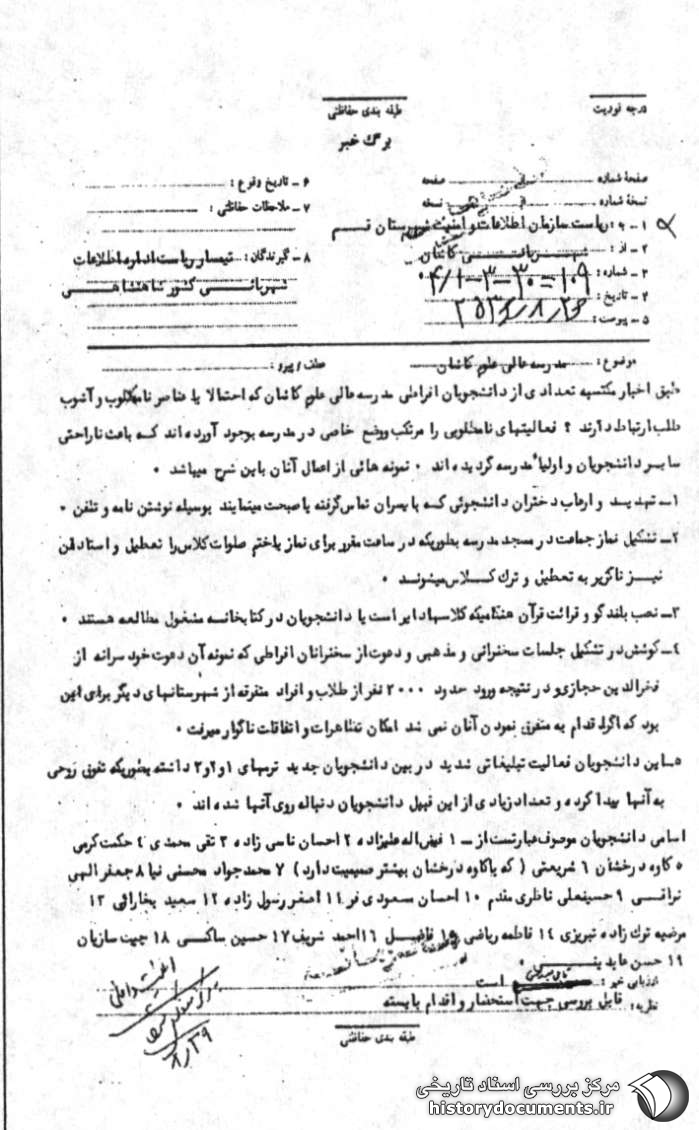 درجه فوریت
طبقه بندی حفاظتی
برگ خبر
صفحهٔ شماره از صفحه
نسخهٔ شماره از نسخه
۱ ـ به : ریاست سازمان اطلاعات و امنیت شهرستان قم
۲ ـ از : شهربانی کاشان
۳ ـ شماره : ۱۰۹=۳۰-۳-۱/۰۴
۴ ـ تاریخ : ۲۵۳۶/۸/۲۶
۵ ـ پیوست :
۶ ـ تاریخ وقوع :
۷ ـ ملاحظات حفاظتی :
۸ ـ گیرندگان : تیمسار ریاست اداره اطلاعات
شهربانی کشور شاهنشاهی
موضوع : مدرسه عالی علوم کاشان عطف / پیرو :
طبق اخبار مکتسبه تعدادی از دانشجویان افراطی مدرسه عالی علوم کاشان که احتمالا با عناصر نامطلوب و آشوب
طلب ارتباط دارند ؟ فعالیتهای نامطلوبی را مرتکب ووضع خاصی در مدرسه بوجود آورده اند که باعث ناراحتی
سایر دانشجویان و اولیاء مدرسه گردیده اند ۰ نمونه هائی از اعمال آنان باین شرح میباشد ۰
۱ـ تهدید و ارعاب دختران دانشجوئی که با پسران تماس گرفته یا صحبت مینمایند بوسیله نوشتن نامه و تلفن ۰
۲ـ تشکیل نماز جماعت در مسجد مدرسه بطوریکه در ساعت مقرر برای نماز باختم صلوات کلاس را تعطیل و استادان
نیز ناگزیر به تعطیل و ترک کلاس میشوند ۰
۳ـ نصب بلندگو و قرائت قرآن هنگامیکه کلاسها دایر است یا دانشجویان در کتابخانه مشغول مطالعه هستند ۰
۴ـ کوشش در تشکیل جلسات سخنرانی و مذهبی و دعوت از سخنرانان افراطی که نمونه آن دعوت خود سرانه از
فخرالدین حجازی و در نتیجه ورود حدود ۲۰۰۰ نفر از طلاب و افراد متفرقه از شهرستانهای دیگر برای این
بود که اگر اقدام به متفرق نمودن آنان نمی شد امکان تظاهرات و اتفاقات ناگوار میرفت ۰
۵ـ این دانشجویان فعالیت تبلیغاتی شدید در بین دانشجویان جدید ترمهای ۱و۲و۳ داشته بطوریکه تفوق روحی
به آنها پیدا کرده و تعداد زیادی از این قبیل دانشجویان دنباله روی آنها شده اند ۰
اسامی دانشجویان موصوف عبارتست از ـ ۱ فیض اله علیزاده ۲ احسان ناسی زاده ۳ تقی محمدی ۴ حکمت کرمی
۵ کاوه درخشان ۶ شریعتی ( که باکاوه درخشان بیشتر صمیمیت دارد ) ۷ محمد جواد محسنی نیا ۸ جعفر الهی
نراقی ۹ حسینعلی ناظری مقدم ۱۰ احسان مسعودی فر ۱۱ اصغر رسول زاده ۱۲ سعید بخارائی ۱۳
مرضیه ترک زاده تبریزی ۱۴ فاطمه ریاضی ۱۵ فاضل ۱۶ احمد شریف ۱۷ حسین ساکتی ۱۸ جهت سازیان
۱۹ حسن عابدینی ۰
ارزیابی خبر : است
نظریه : قابل بررسی جهت استحضار و اقدام بایسته
طبقه بندی حفاظتی
۸/۲۹
مرکز بررسی اسناد تاریخی
historydocuments.ir